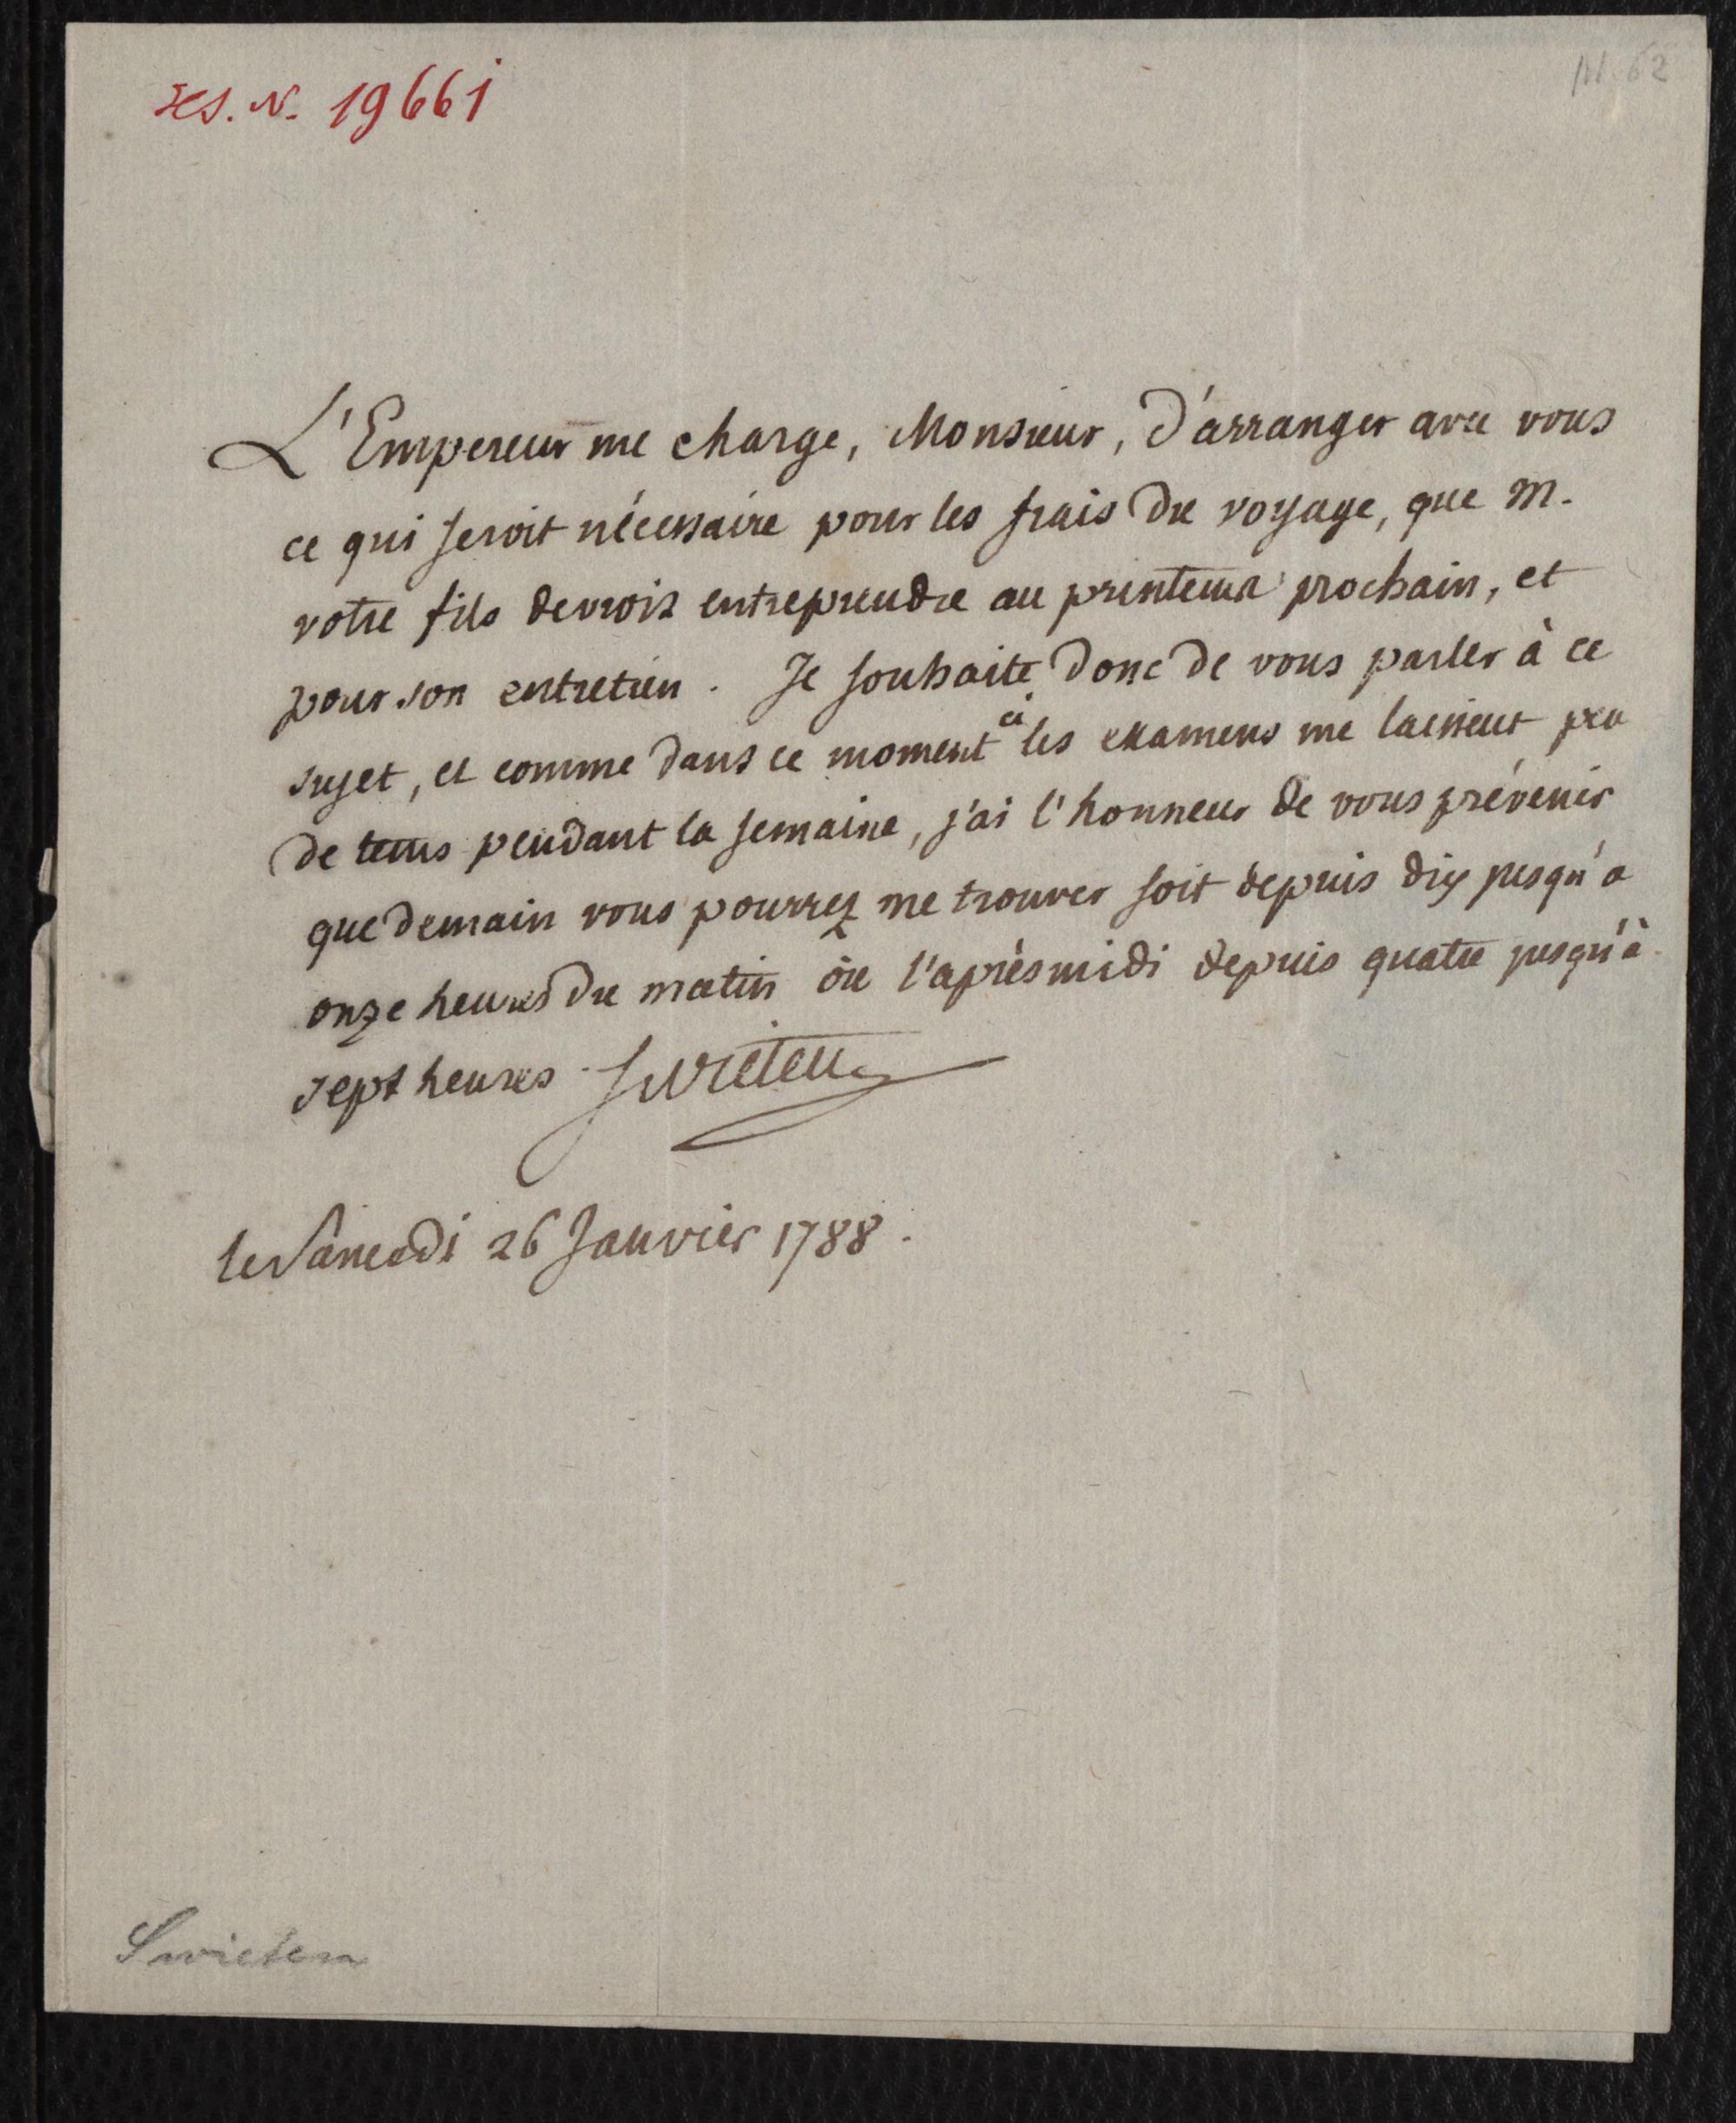 H.S. N. 19661
L'Empereur me charge, Monsieur, d'arranger avec vous
ce qui seroit nécessaire pour les frais du voyage, que M.
votre fils devroit entreprendre au printems prochain, et
pour son entretien. Je souhaite donc de vous parler à ce
sujet, et comme dans ce moment ci les examens me laissent peu
de tems pendant la semaine, j'ai l'honneur de vous prévenir
que demain vous pourrez me trouver soit depuis dix jusqu'a
onze heures du matin ou l'aprèsmidi depuis quatre jusqu'à
sept heures. Swieten
le Samedi 26 Janvier 1788.
Swieten